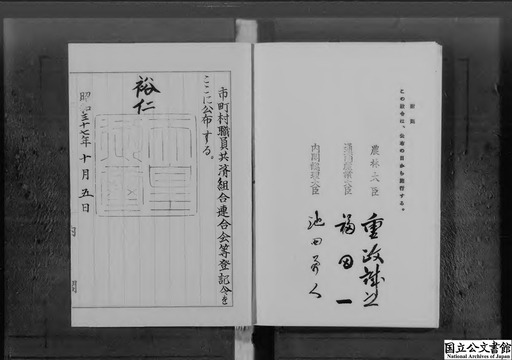 附則
この政令は、公布の日から施行する。
農林大臣
重政誠之
通商産業大臣
福田一
内閣総理大臣
池田勇人
市町村職員共済組合連合会等登記令を
ここに公布する。
裕仁
昭和三十七年十月五日
国立公文書館
National Archives of Japan